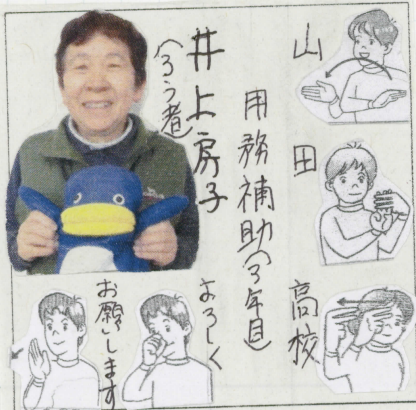 山田高校
用務補助(3年目)
井上房子
(ろう者)
よろしく
お願いします